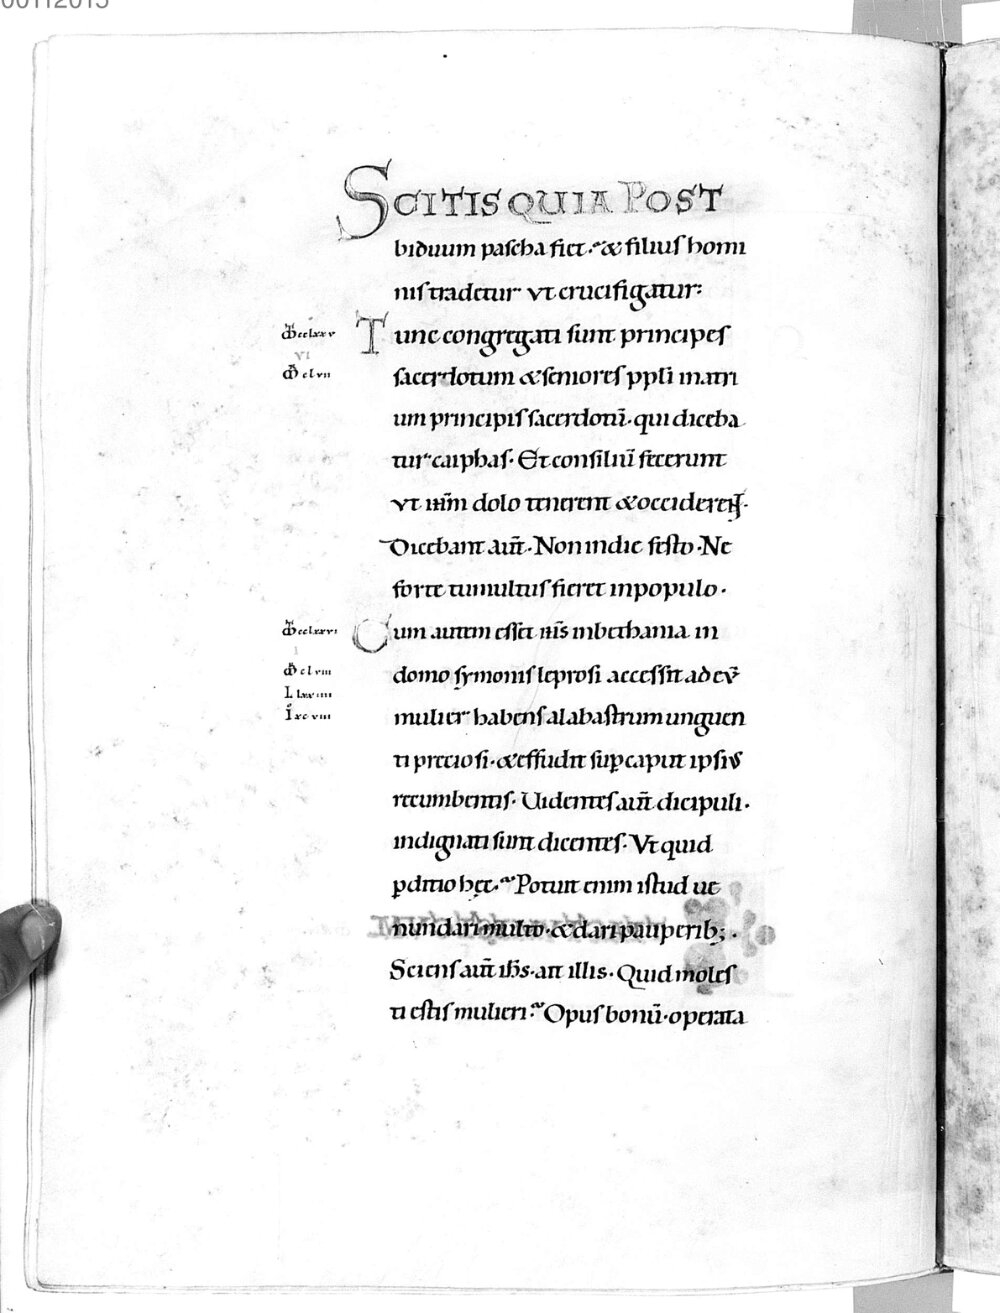 00112015
SCITIS QUIA POST
biduum pascha fiet· & filius homi
nis tradetur ut crucifigatur:
M̅ cclxxv Tunc congregati sunt principes
VI
M̅R̅ clvii sacerdotum & seniores ppl̅i in atri
um principis sacerdotu̅· qui diceba
tur caiphas· Et consiliu̅ fecerunt
ut ih̅m dolo tenerent & occiderent·
Dicebant aut̅· Non in die festo· Ne
forte tumultus fieret in populo·
M̅ cclxxvi Cum autem esset ih̅s in bethania in
I
M̅R̅ clviii domo symonis leprosi accessit ad eu̅
L lxxiiii
I xcviii mulier habens alabastrum unguen
ti preciosi· & effudit sup̲ caput ipsius
recumbentis· Uidentes aut̅ dicipuli·
indignati sunt dicentes· Ut quid
p̲ditio hęc· Potuit enim istud ue
nundari multo· & dari pauperib;·
Sciens aut̅ ih̅s· ait illis· Quid moles
ti estis mulieri· Opus bonu̅· operata